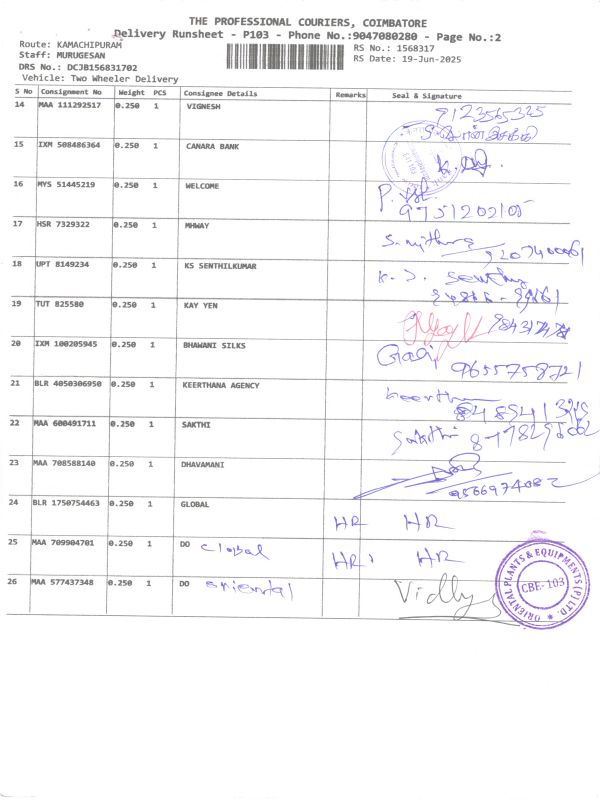 THE PROFESSIONAL COURIERS, COIMBATORE
Delivery Runsheet - P103 - Phone No.:9047080280 - Page No.:2
Route: KAMACHIPURAM RS No.: 1568317
Staff: MURUGESAN RS Date: 19-Jun-2025
DRS No.: DCJB156831702
Vehicle: Two Wheeler Delivery
S No Consignment No Weight PCS Consignee Details Remarks Seal & Signature
14 MAA 111292517 0.250 1 VIGNESH 9123565325
15 IXM 508486364 0.250 1 CANARA BANK
16 MYS 51445219 0.250 1 WELCOME
9751202105
17 HSR 7329322 0.250 1 MHWAY
18 UPT 8149234 0.250 1 KS SENTHILKUMAR
19 TUT 825580 0.250 1 KAY YEN
20 IXM 100205945 0.250 1 BHAWANI SILKS
9655758721
21 BLR 4050306950 0.250 1 KEERTHANA AGENCY
22 MAA 600491711 0.250 1 SAKTHI Sakthi
23 MAA 708588140 0.250 1 DHAVAMANI
9566974082
24 BLR 1750754463 0.250 1 GLOBAL HR HR
25 MAA 709904701 0.250 1 DO Global HR HR
26 MAA 577437348 0.250 1 DO oriental Vidhy
ORIENTAL PLANTS & EQUIPMENTS (P) LTD.
CBE-103